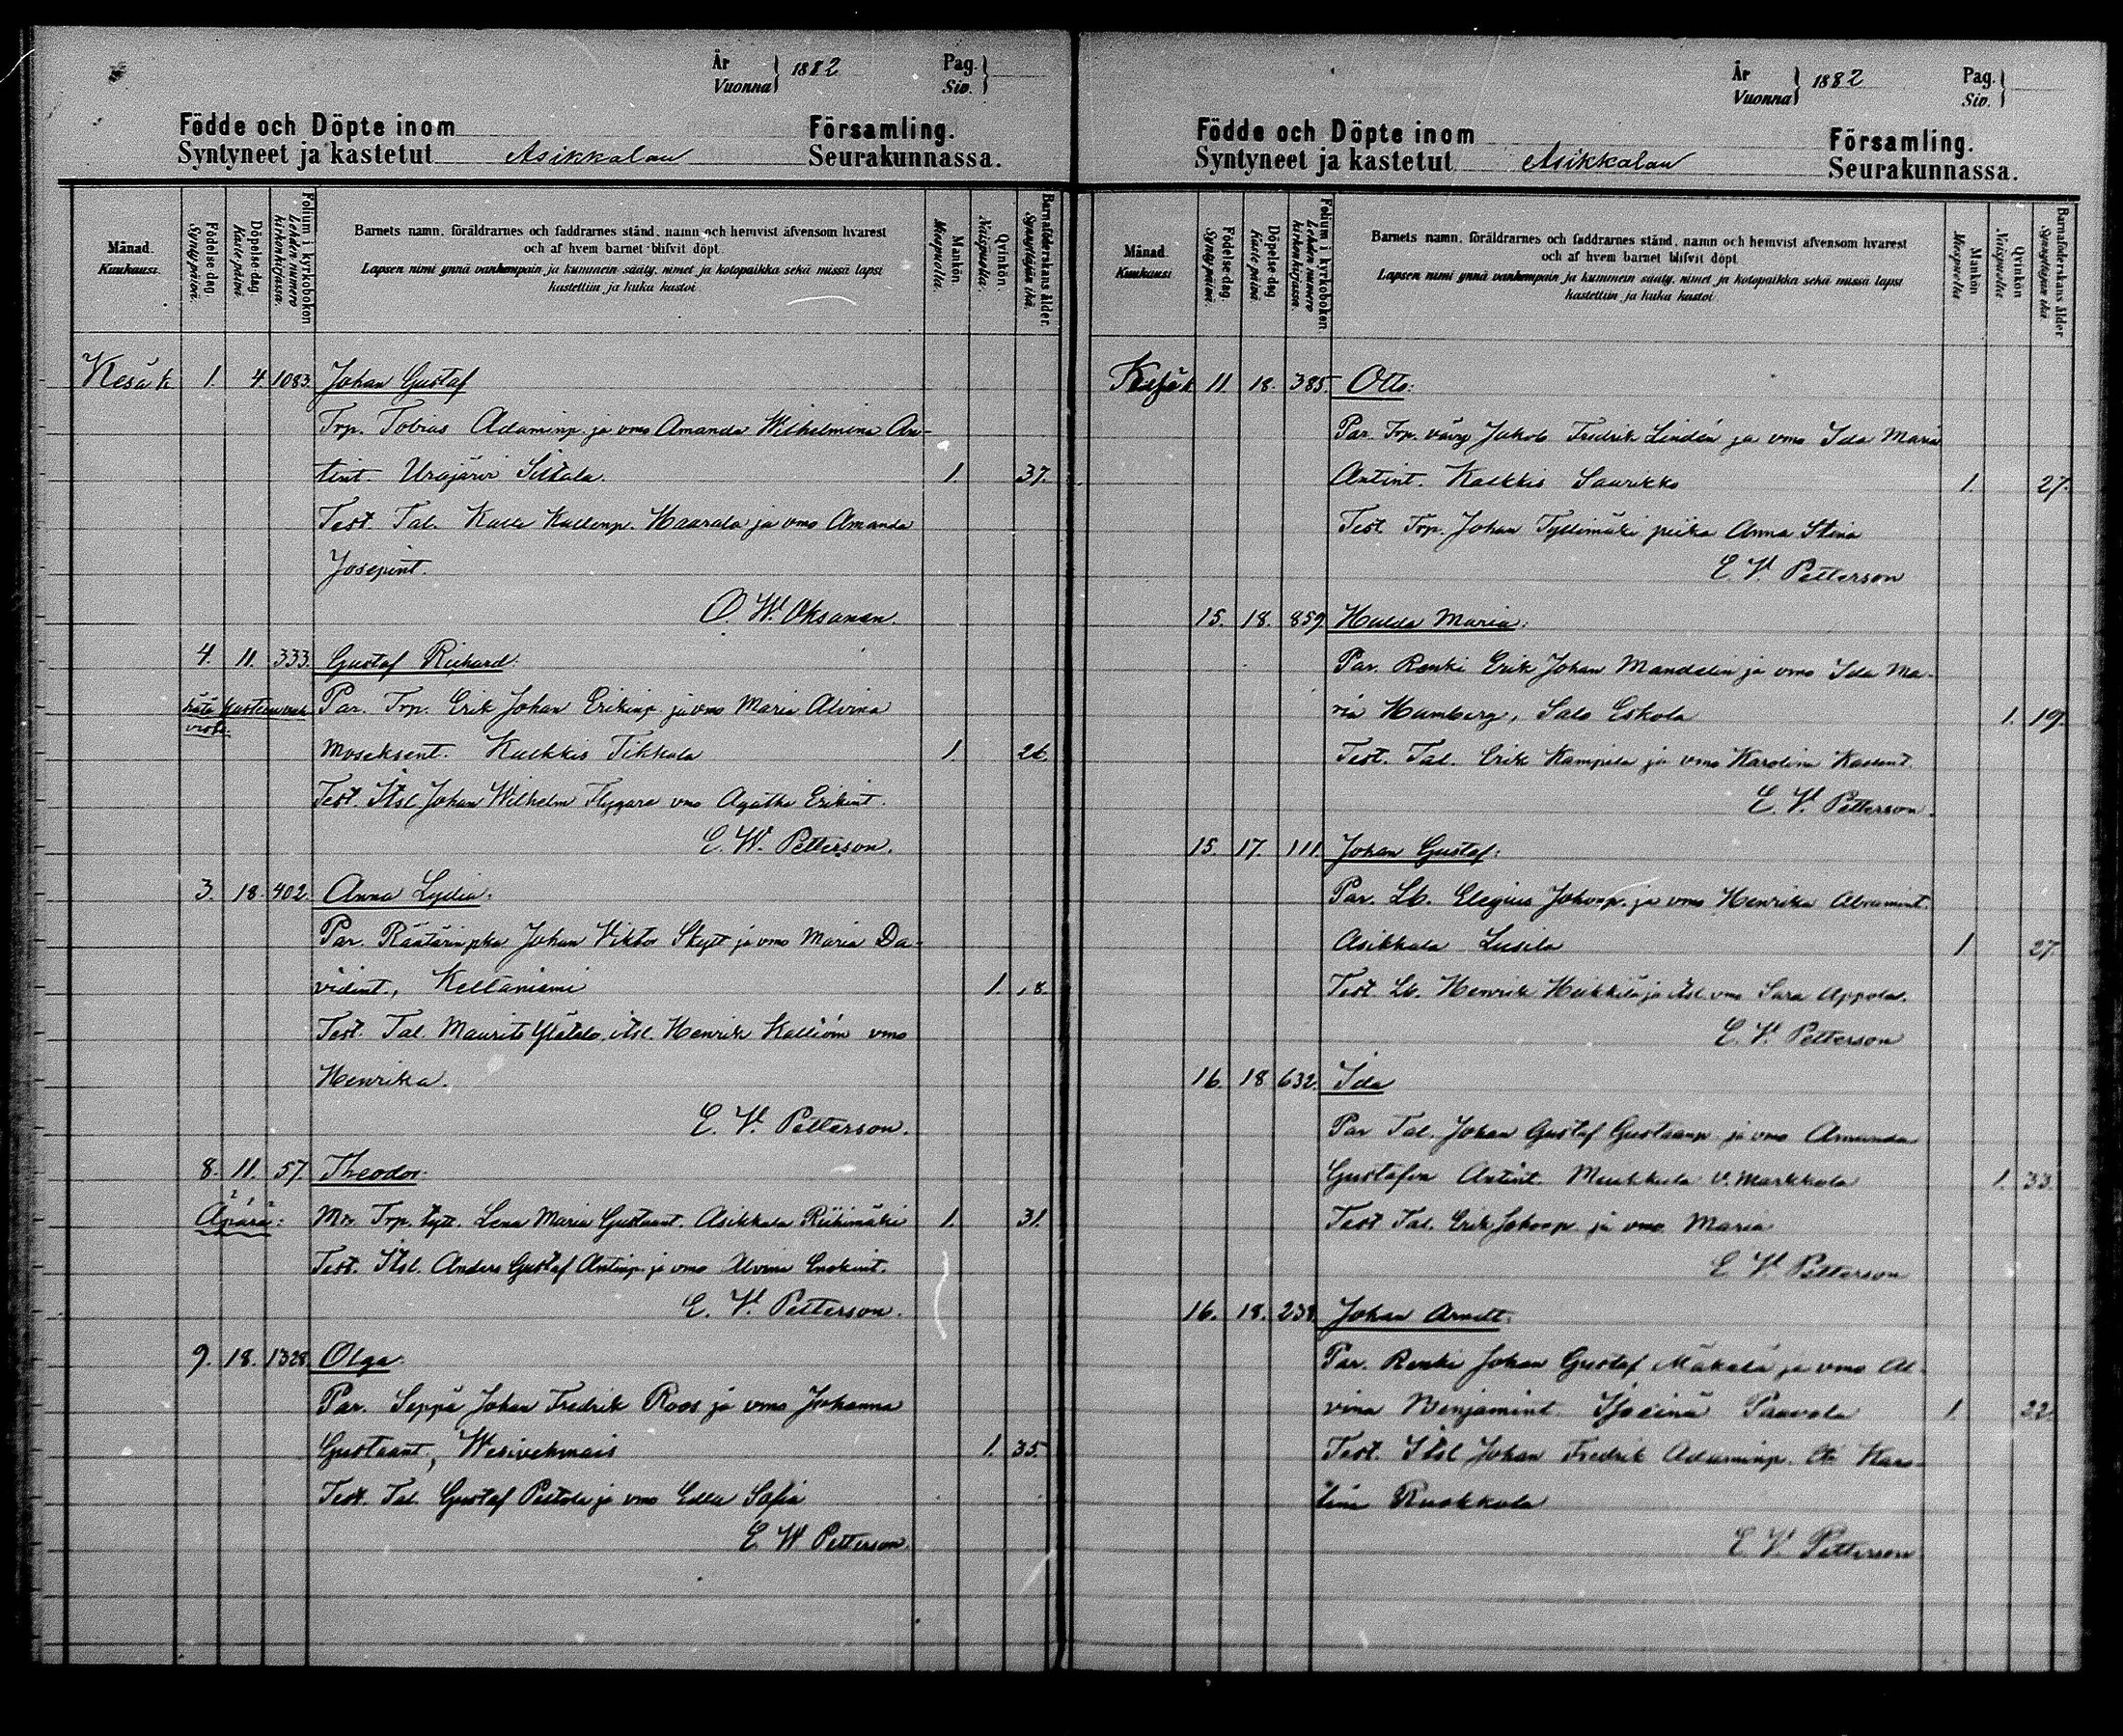 År
Vuonna } 1882
Pag.
Siv. }
Födde och Döpte inom Församling.
Syntyneet ja kastetut Asikkalan Seurakunnassa.
Månad. Kuukausi.
Födelse dag Synty päivä.
Döpelse dag Kaste päivä.
Folium i kyrkoboken Lehden numero kirkonkirjassa.
Barnets namn, föräldrarnes och faddrarnes stånd, namn och hemvist äfvensom hvarest
och af hvem barnet blifvit döpt.
Lapsen nimi ynnä vanhempain ja kummein sääty, nimet ja kotopaikka sekä missä lapsi
kastettiin ja kuka kastoi
Mankön Miespuolta.
Qvinkön Naispuolta.
Barnaföderskans ålder. Synnyttäjän ikä
Kesäk 1. 4. 1083. Johan Gustaf
Trp. Tobias Adaminp. ja vmo Amanda Wilhelmina An-
tint. Urajärvi Sillala. 1. 37.
Test. Tal. Kalle Kallenp. Haarala ja vmo Amanda
Josepint.
O. W. Oksanen.
4. 11. 333. Gustaf Richard:
hätä kasteen
Par. Trp. Erik Johan Erikinp. ja vmo Maria Alvina
Moseksent. Kalkkis Tikkala 1. 26.
Test. Itsl. Johan Wilhelm Flygare vmo Agatha Erikint.
E. W. Petterson.
3. 18. 402. Anna Lydia:
Par. Räätärin pka Johan Viktor Skytt ja vmo Maria Da-
vidint., Keltaniemi 1. 18.
Test. Tal. Maurits Ylätalo, itsl. Henrik Kalliom vmo
Henrika.
E. V. Petterson.
8. 11. 57. Theodor:
Äpärä: Mr. Trp. tytt. Lena Maria Gustaant. Asikkala Riihimäki 1. 31.
Test. Itsl. Anders Gustaf Antinp. ja vmo Alvina Enokint.
E. V. Petterson.
9. 18. 1328. Olga:
Par. Seppä Johan Fredrik Roos ja vmo Johanna
Gustaant, Wesivehmais 1. 35.
Test. Tal. Gustaf Peltola ja vmo Edla Sofia
E. W Petterson.
År
Vuonna } 1882
Pag.
Siv. }
Födde och Döpte inom Församling.
Syntyneet ja kastetut Asikkalan Seurakunnassa.
Månad Kuukausi.
Födelse dag Synty päivä.
Döpelse dag Kaste päivä.
Folium i kyrkoboken Lehden numero kirkonkirjassa.
Barnets namn, föräldrarnes och faddrarnes stånd, namn och hemvist äfvensom hvarest
och af hvem barnet blifvit döpt.
Lapsen nimi ynnä vanhempain ja kummein sääty, nimet ja kotopaikka sekä missä lapsi
kastettiin ja kuka kastoi.
Mankön Miespuolta
Qvinkön Naispuolta
Barnaföderskans ålder Synnyttäjän ikä
Kesäk 11. 18. 385. Otto:
Par. Trp. vävy Jakob Fredrik Lindén ja vmo Ida Maria
Antint. Kalkkis Saurikko 1. 27.
Test. Trp. Johan Tyllimäki piika Anna Stina
E V. Petterson
15. 18. 859. Hulda Maria:
Par. Renki Erik Johan Mandelin ja vmo Ida Ma-
ria Hamberg, Salo Eskola 1. 19.
Test. Tal. Erik Kampila ja vmo Karolina Kallent.
E. V. Petterson.
15. 17. 111. Johan Gustaf:
Par. Lb. Elegius Johonp. ja vmo Henrika Abramint.
Asikkala Lusila 1 27.
Test. Lb. Henrik Heikkilä ja itsl. vmo Sara Appola.
E. V. Petterson
16. 18 632. Ida
Par Tal. Johan Gustaf Gustaanp. ja vmo Amanda
Gustafva Antint. Muikkula V. Markkola 1. 33.
Test Tal. Erik Johonp. ja vmo Maria
E V. Petterson
16. 18. 238. Johan Arndt:
Par. Renki Johan Gustaf Mäkelä ja vmo Al-
vina Benjamint. Paavola 1. 22
Test. Itsl. Johan Fredrik Adaminp. Karo-
lina Ruokkola
E. V. Petterson